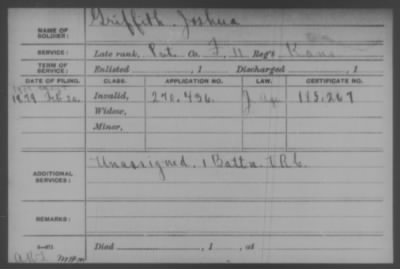 NAME OF SOLDIER: Griffith, Joshua
SERVICE: Late rank, Pvt. Co. F, 11 Reg't Kans
TERM OF SERVICE: Enlisted , 1 Discharged , 1
DATE OF FILING. CLASS. APPLICATION NO. LAW. CERTIFICATE NO.
1879 Feb 20. Invalid, 270.496. 113.267
Widow,
Minor,
ADDITIONAL SERVICES: Unassigned. 1 Battn. V.R.C.
REMARKS:
Died , 1 , at